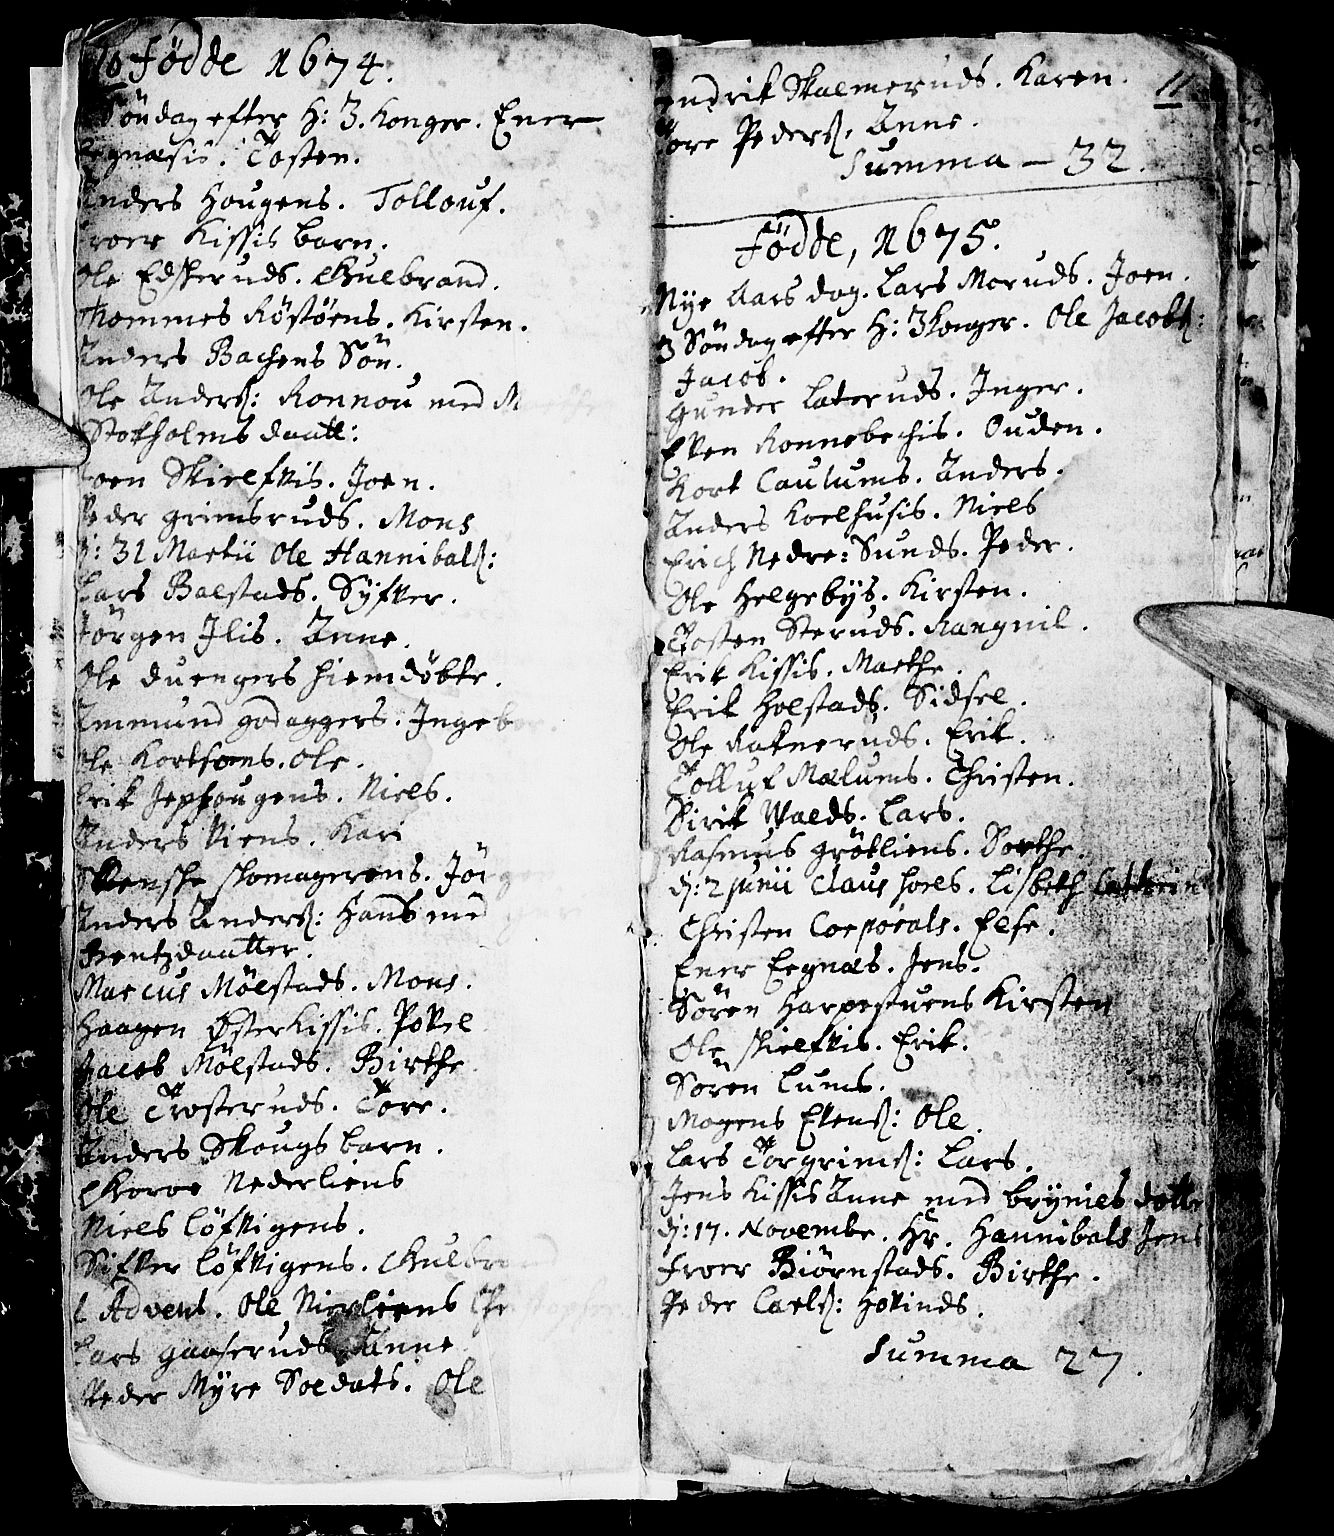 10 Födde 1674.
Söndag efter H: 3. Konger. Ener
Tosten.
Anders Hougens. Tollouf.
Froer Kissis barn.
Ole Edsheruds. Gulbrand.
Thommes Röstöens. Kirsten.
Anders Bachens Sön.
Ole Anders: Ronnou med
Stokholms daatt:
Joen Skielfvis. Joen.
Peder Grimsruds. Mons
d: 31 Martii Ole Hannibals:
Lars Balstads. Syfver.
Jörgen Ilis. Anne.
Ole duengers hiemdöbte.
Ammund godaggers. Ingebor.
Ole Kortsoens. Ole.
Erik Jephougens. Niels.
Anders Viens. Kari
Svenshe skomagerens. Jörgen
Anders Anders: Hans med
Bentzdaatter.
Marcus Mölstads. Mons.
Haagen Österkissis. Povel
Jacob Mölstads. Birthe.
Ole Trosteruds. Tore.
Anders Skougs barn.
Nederliens
Niels Löfvigens.
Sifver Löfvigens. Gulbrand
1 Advent. Ole Nierliens Christopher
Lars gaaseruds Anne
Peder Myre Soldats. Ole
11
endrik Skalmeruds. Karen.
Tore Peders. Anne.
Summa — 32.
Födde, 1675.
Nye Aars dag. Lars Moruds. Joen.
3 Söndag efter H: 3 Konger. Ole Jacobs:
Jacob.
Gunder Lateruds. Inger.
Even Ronnebechis. Ouden.
Kort Caulums. Anders.
Anders Koelhusis. Niels
Erich Nedre: Sunds. Peder.
Ole Helgebys. Kirsten.
Tosten Steruds. Rangnil.
Erik Kissis. Marthe.
Erik Holstads. Sidsel.
Ole Rakneruds. Erik.
Tolluf Mælums. Christen.
Sirik Walds. Lars.
Rasmus Grötliens. Dorthe.
d: 2 Junii Claus hoels. Lisbeth Cathrin
Christen Corporals. Else.
Ener Eegnæs. Jens.
Sören Harpestuens Kirsten
Ole skielfvis. Erik.
Sören Lums.
Mogens Evens: Ole.
Lars Torgrims: Lars.
Jens Kissis Anne med brynies dotte
d: 17. Novembr. Hr. Hannibals Jens
Froer Biörnstads. Birthe.
Peder Carls: Hovinds.
Summa 27.